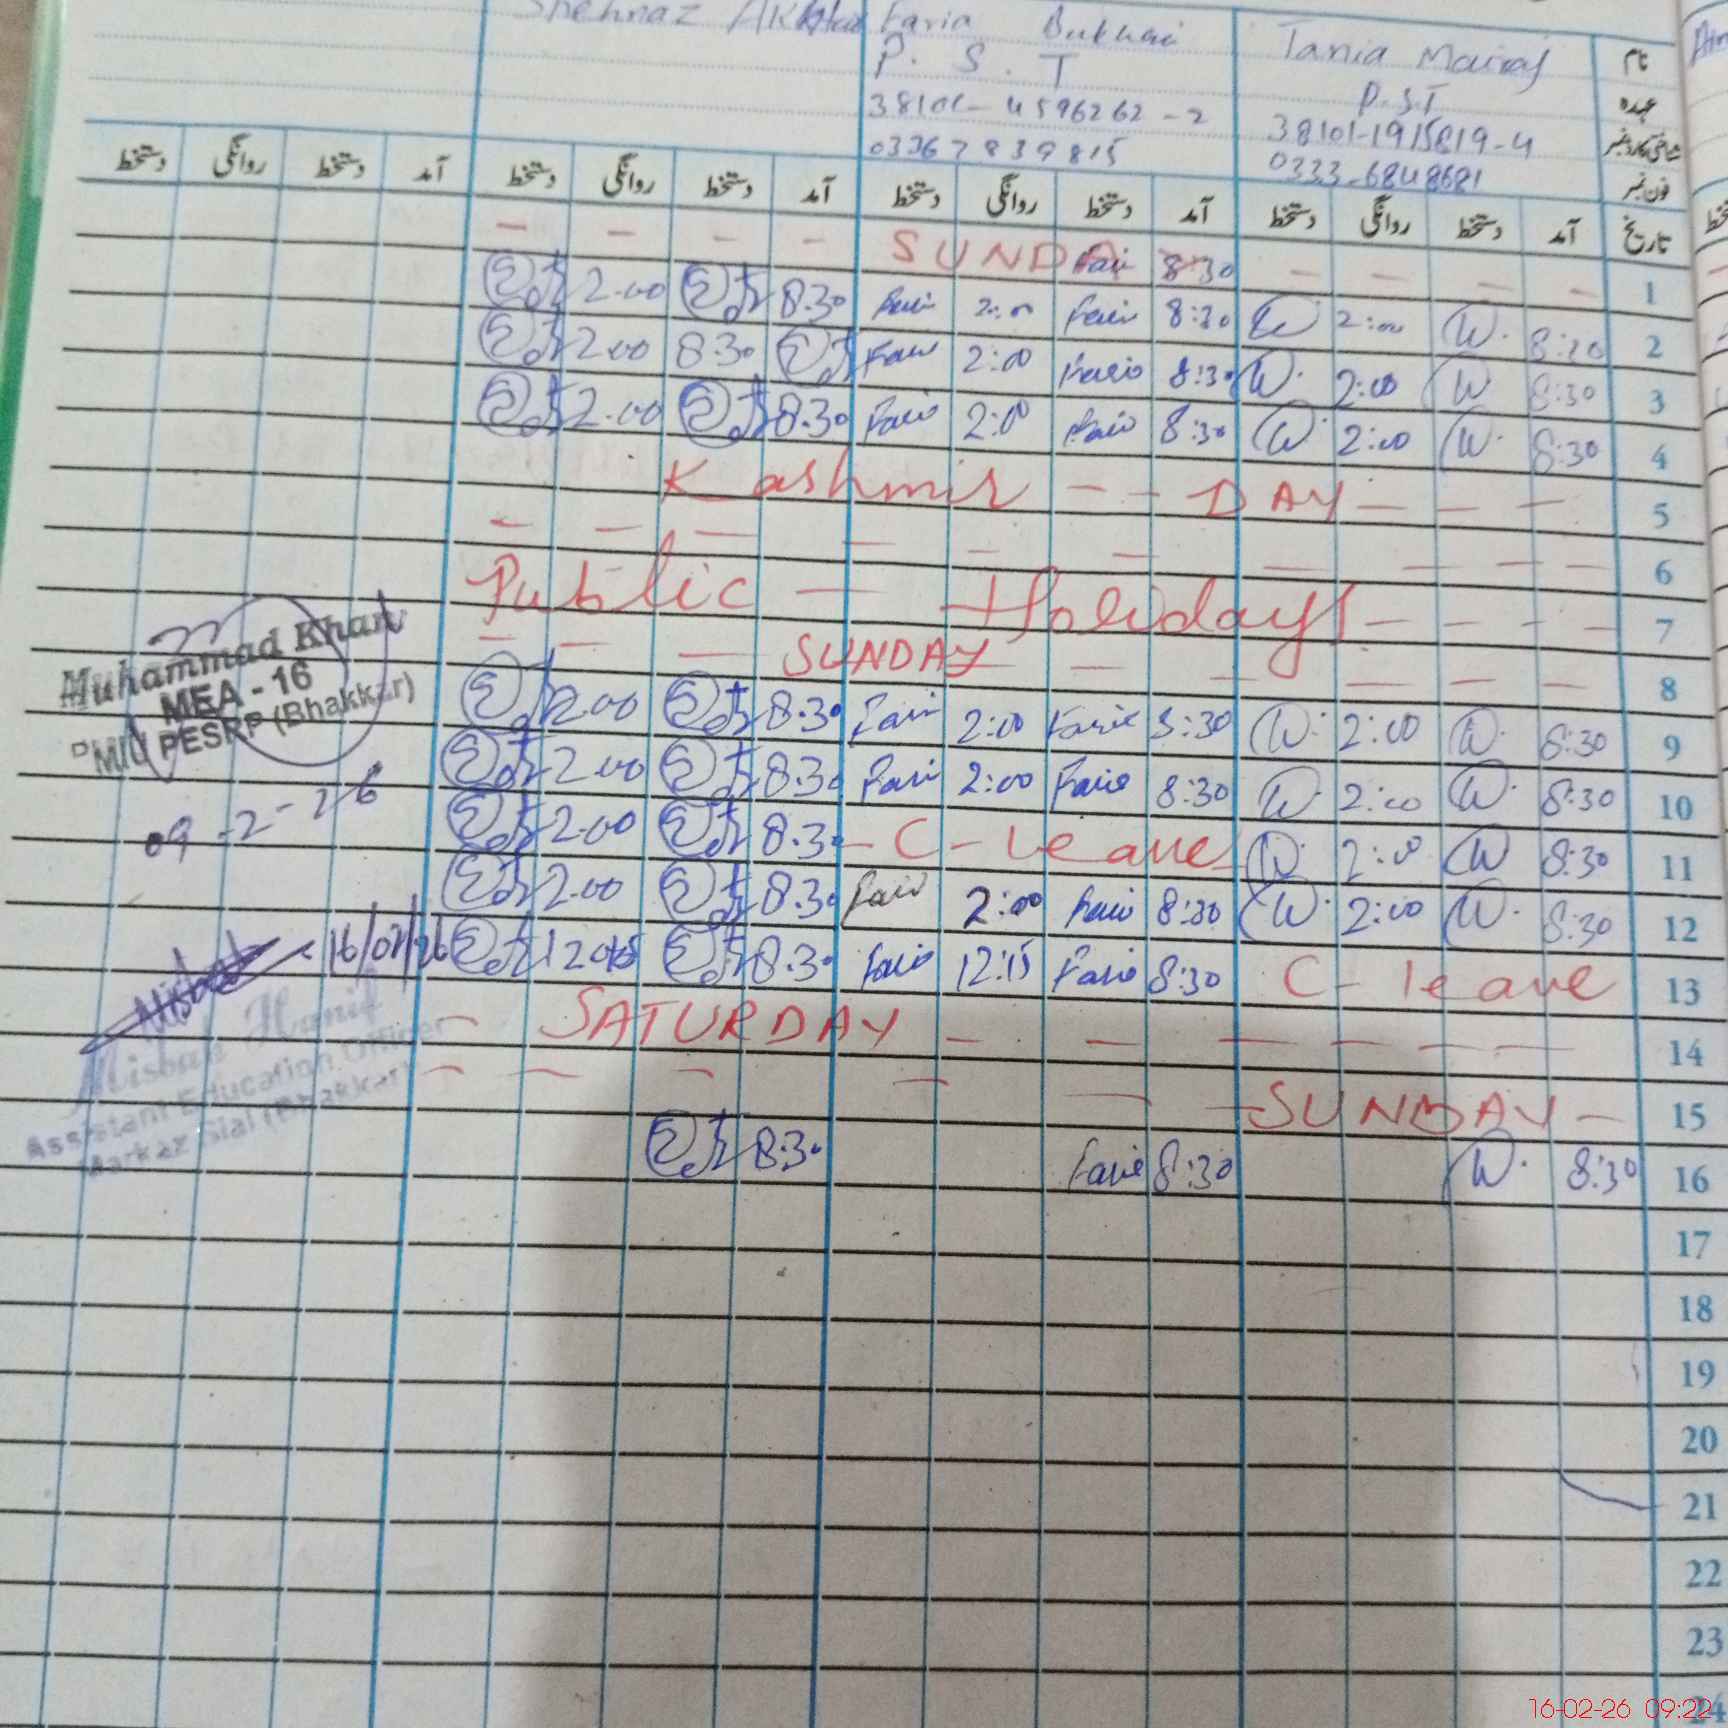 Shehnaz Akhtar Faria Bukhari Tania Mairaj نام
P. S. T P.S.T عہدہ
38101-4596262-2 38101-1915819-4 شناختی کارڈ نمبر
03367839815 0333-6848681 فون نمبر
دستخط روانگی دستخط آمد دستخط روانگی دستخط آمد دستخط روانگی دستخط آمد دستخط روانگی دستخط آمد تاریخ
- - - - SUNDA Fari 8:30 - - - - 1
2.00 8.30 Fari 2:00 Fari 8:30 W 2:00 W. 8:30 2
2.00 8.30 Fari 2:00 Faria 8:30 W. 2:00 W 8:30 3
2.00 8.30 Fari 2:00 Fari 8:30 W. 2:00 W. 8:30 4
Kashmir - - DAY - - - 5
- - - - - - - - - - 6
Public - Holiday - - - - 7
- - - SUNDAY - - - - - - 8
2.00 8.30 Fari 2:00 Faria 8:30 W. 2:00 W. 8:30 9
2.00 8.30 Fari 2:00 Faria 8:30 W. 2:00 W. 8:30 10
2.00 8.30 - C - Leave W. 2:00 W 8:30 11
2.00 8.30 Fari 2:00 Fari 8:30 W. 2:00 W. 8:30 12
8.30 Faria 12:15 Faria 8:30 C - leave 13
- SATURDAY - - - - - - 14
- - - - - - SUNDAY - 15
8.30 Faria 8:30 W. 8:30 16
17
18
19
20
21
22
23
24
Muhammad Khan
MEA - 16
PMIU PESRP (Bhakkar)
09-2-26
16/02/26
Misbah Hanif
Assistant Education Officer
Markaz Sial (Bhakkar)
16-02-26 09:22